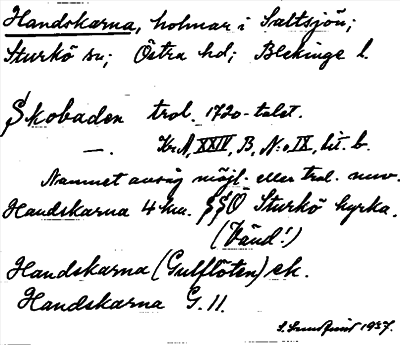 Handskarna, holmar i Saltsjön;
Sturkö sn; Östra hd; Blekinge l.
Skobaden trol. 1720-talet.
—. Kr A, XXIV, B, N:o IX, lit. b.
Namnet avsåg möjl. eller trol. nuv.
Handskarna 4 hm. SSÖ Sturkö kyrka.
(Vänd!)
Handskarna (Gulflöten) ek.
Handskarna G. 11.
S. Sundquist 1937.